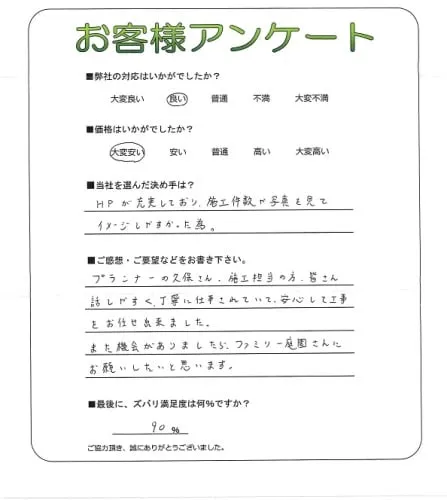 お客様アンケート
■弊社の対応はいかがでしたか？
大変良い 良い 普通 不満 大変不満
■価格はいかがでしたか？
大変安い 安い 普通 高い 大変高い
■当社を選んだ決め手は？
HPが充実しており、施工件数や写真を見て
イメージしやすかった為。
■ご感想・ご要望などをお書き下さい。
プランナーの久保さん、施工担当の方、皆さん
話しやすく、丁寧に仕事されていて、安心して工事
をお任せ出来ました。
また機会がありましたら、ファミリー庭園さんに
お願いしたいと思います。
■最後に、ズバリ満足度は何％ですか？
90 %
ご協力頂き、誠にありがとうございました。